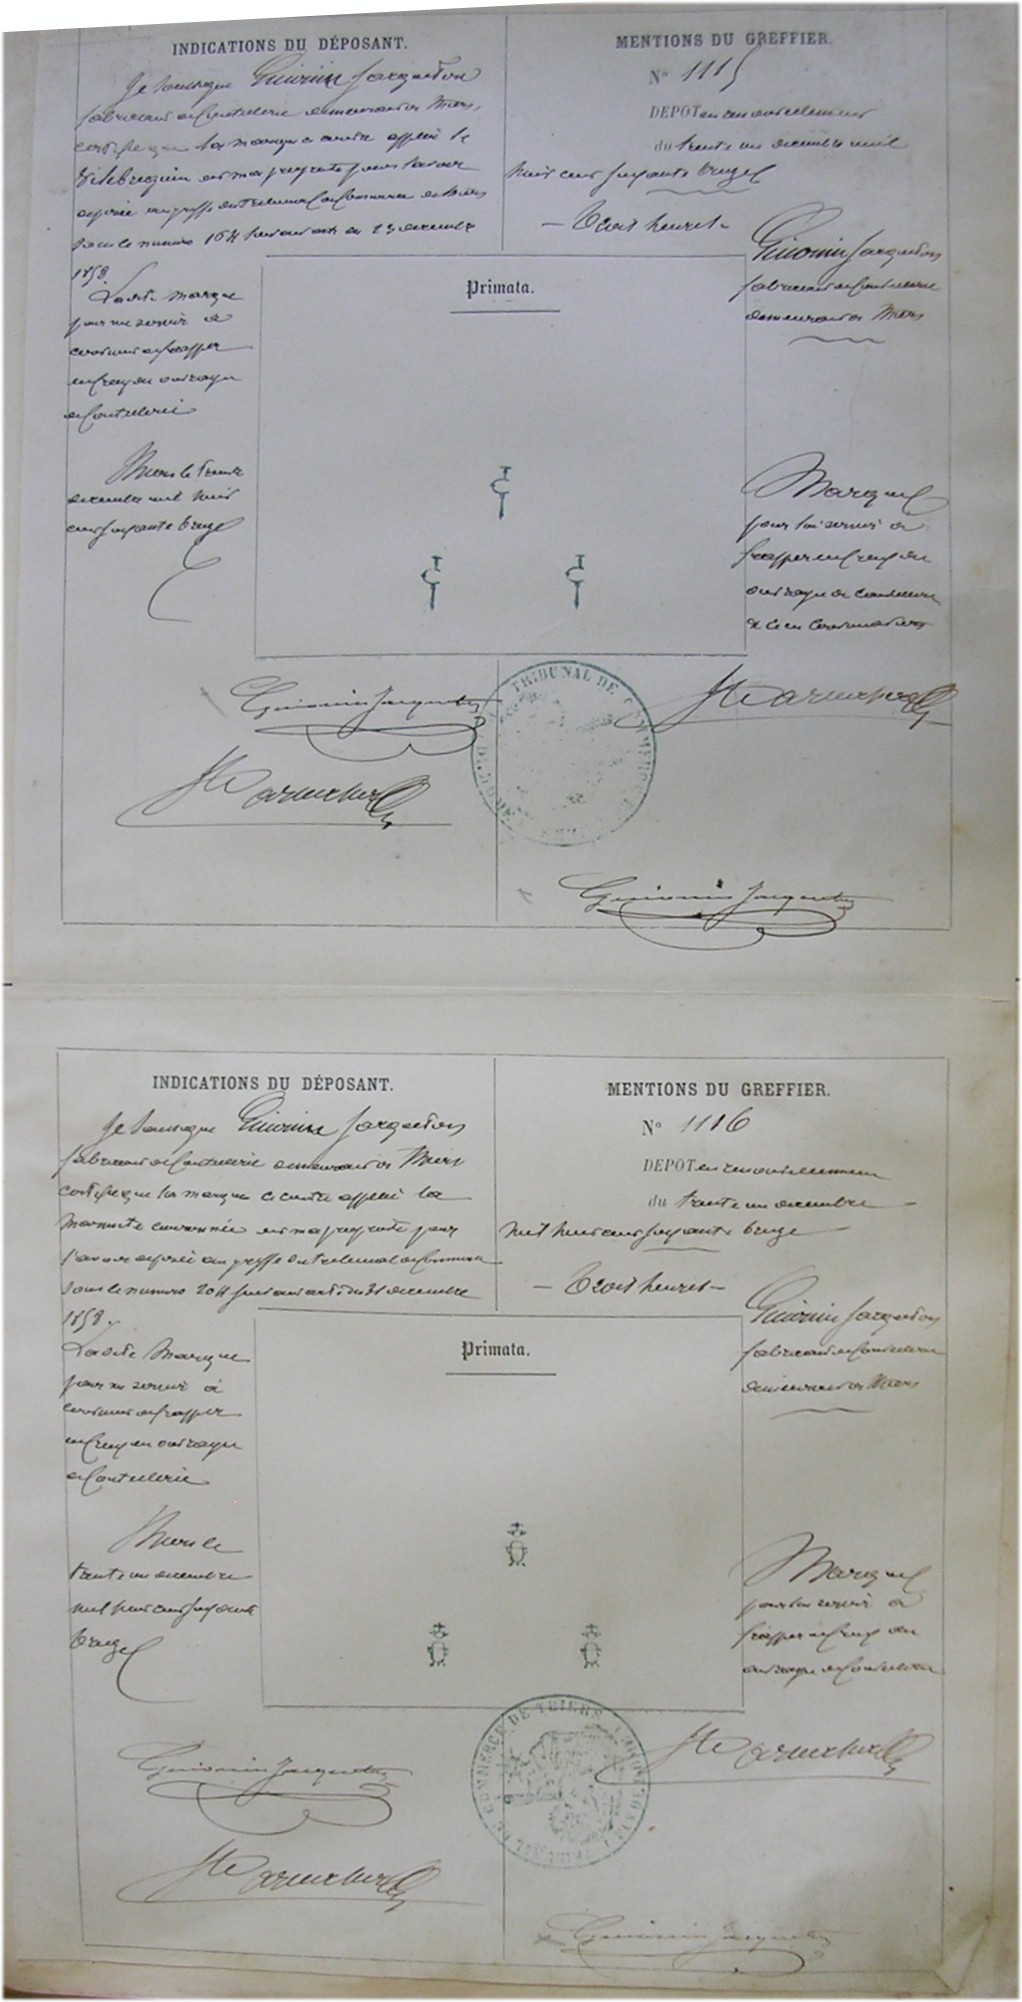 INDICATIONS DU DÉPOSANT.
Je soussigné Guionin Jarqueton
fabricant de Coutellerie demeurant à Thiers
certifie que la marque ci contre appelée le
Vilebrequin est ma propriété pour l'avoir
déposée au greffe du tribunal de Commerce de Thiers
sous le numéro 164 suivant acte du 23 décembre
1858.
Ladite marque
pour me servir à
continuer de frapper
en creux en ouvrage
de Coutellerie
Thiers le trente
décembre mil huit
cent soixante treize
MENTIONS DU GREFFIER.
N° 1115
DEPOT en renouvellement
du trente un décembre mil
huit cent soixante treize
– Trois heures –
Guionin Jarqueton
fabricant de Coutellerie
demeurant à Thiers
Primata.
Marque
pour lui servir à
frapper en creux en
ouvrage de Coutellerie
Guionin Jarqueton
TRIBUNAL DE COMMERCE
Guionin Jarqueton
INDICATIONS DU DÉPOSANT.
Je soussigné Guionin Jarqueton
fabricant de Coutellerie demeurant à Thiers
certifie que la marque ci contre appelée la
Marmite couronnée est ma propriété pour
l'avoir déposée au greffe du tribunal de Commerce
sous le numéro 204 suivant acte du 31 décembre
1858.
Ladite Marque
pour me servir à
continuer de frapper
en creux en ouvrage
de Coutellerie
Thiers le
trente un décembre
mil huit cent soixante
treize
MENTIONS DU GREFFIER.
N° 1116
DEPOT en renouvellement
du trente un décembre
mil huit cent soixante treize
– Trois heures –
Guionin Jarqueton
fabricant de Coutellerie
demeurant à Thiers
Primata.
Marque
pour lui servir à
frapper en creux en
ouvrage de Coutellerie
Guionin Jarqueton
TRIBUNAL DE COMMERCE DE THIERS
Guionin Jarqueton